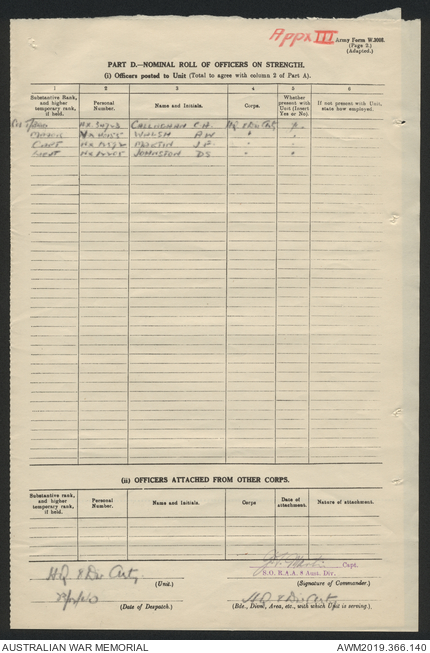 Appx III
Army Form W.3008.
(Page 2.)
(Adapted.)
PART D.—NOMINAL ROLL OF OFFICERS ON STRENGTH.
(i) Officers posted to Unit (Total to agree with column 2 of Part A).
1 2 3 4 5 6
Substantive Rank, and higher temporary rank, if held.
Personal Number.
Name and Initials.
Corps.
Whether present with Unit (Insert Yes or No).
If not present with Unit, state how employed.
CALLAGHAN C.A. HQ 8 Div Arty
MAJOR WALSH A W "
CAPT MARTIN J.F. " "
LIEUT JOHNSTON DS " "
(ii) OFFICERS ATTACHED FROM OTHER CORPS.
Substantive rank, and higher temporary rank, if held.
Personal Number.
Name and Initials.
Corps
Date of attachment.
Nature of attachment.
Capt.
S.O. R.A.A. 8 Aust. Div.
HQ 8 Div Arty.
(Unit.)
(Signature of Commander.)
HQ 8 Div Arty
(Date of Despatch.)
(Bde., Divnl, Area, etc., with which Unit is serving.)
AUSTRALIAN WAR MEMORIAL
AWM2019.366.140